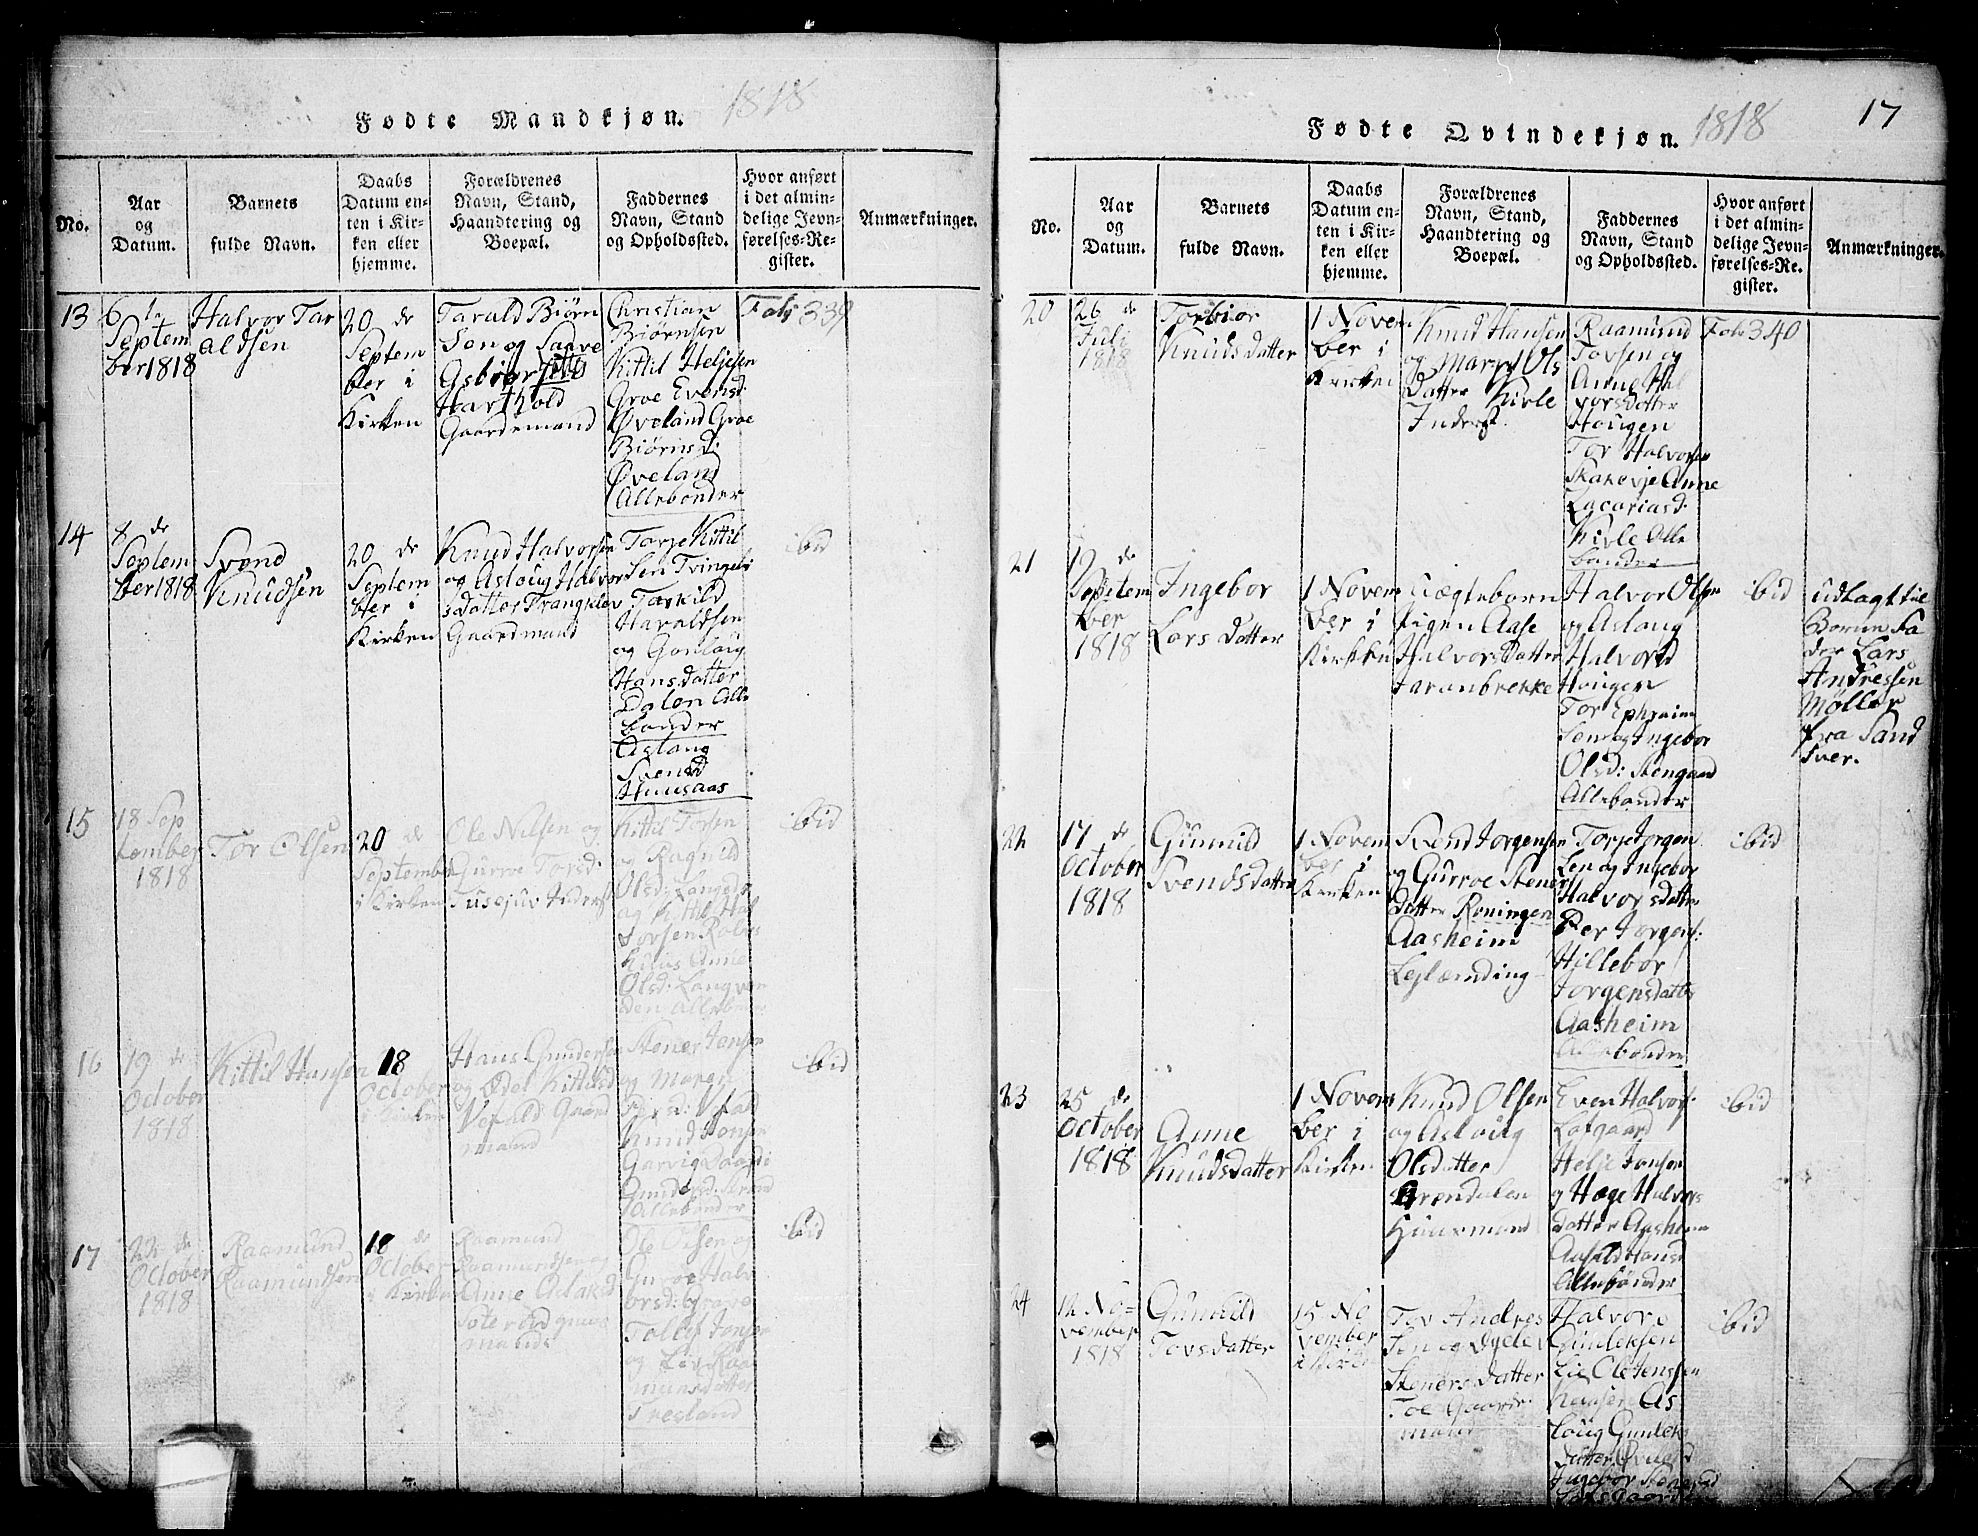 Fødte Mandkjøn. 1818
No.
Aar
og
Datum.
Barnets
fulde Navn.
Daabs
Datum en-
ten i Kir-
ken eller
hjemme.
Forældrenes
Navn, Stand,
Haandtering og
Boepæl.
Faddernes
Navn, Stand
og Opholdssted.
Hvor anført
i det almin-
delige Jevn-
førelses-Re-
gister.
Anmærkninger.
13
6 te
Septem
ber 1818
Halvor Tar
aldsen
20 de
Septem
ber i
Kirken
Tarald Biørn
Sen og Saave
Asbiør
Harthold
Gaardemand
Christian
Biørensen
Kittil Heljesen
Groe Evensd
Øveland Groe
Biørnsd:
Øveland
Allebønder
Fol: 339
14
8 de
Septem
ber 1818
Svend
Knudsen
20 de
Septem
ber i
Kirken
Knud Halvorsen
og Asloug Halvor
sdatter Trangklev
Gaardmand
Torje Kittil
Sen
Tarkild
Haraldsen
og Gonloug
Hansdatter
Dalen Alle
bønder
Aslaug
Svensd
Huusaas
ibid
15
18 Sep
tember
1818
Tor Olsen
20 de
September
i Kirken
Ole Nilsen og
Gurroe Torsd:
Tusejuv Inderst
Kittil Torsen
og Ragnild
Olsd:
og Kittil Hal
vorsen
Anne
Olsd: Langvon
den Allebønder
ibid
16
19 de
October
1818
Kittil Hansen
18
October
i Kirken
Hans Gundersen
og Kittilsd
Vefald Gaard
mand
Stener Jonsen
og Maren
Vefald
Knud Jonsen
Garvig
Gundersd:
Allebønder
ibid
17
22 de
October
1818
Raamund
Raamundsen
18 de
October
i Kirken
Raamund
Raamundsen og
Anne Aslaksd
Ole Olsen og
Guroe Halv
orsd:
Tollef Jonsen
og Liv Raa
munsdatter
Tresland
ibid
Fødte Qvindekjøn. 1818 17
No.
Aar
og
Datum.
Barnets
fulde Navn.
Daabs
Datum en-
ten i Kir-
ken eller
hjemme.
Forældrenes
Navn, Stand,
Haandtering og
Boepæl.
Faddernes
Navn, Stand
og Opholdssted.
Hvor anført
i det almin-
delige Jevn-
førelses-Re-
gister.
Anmærkninger.
20
26 de
Juli
1818
Torbiør
Knudsdatter
1 Novem
ber i
Kirken
Knud Hansen
og Marry Ols
Datter Kivle
Inderst
Raamund
Tovsen og
Anne Hal
vorsdatter
Hougen
Tor Halvorsen
Anne
Zacariasd:
Kivle Alle
bønder
Fol: 340
21
19 de
Septem
ber
1818
Ingebor
Lars datter
1 Novem
ber i
Kirken
Uægteborn
Pigen Aase
Halvorsdatter
Jaranbrekke
Halvor Olsen
og Aslaug
Halvorsd
Hougen
Tor Ephraim
Sen og Ingebor
Olsd: Stengaard
Allebønder
ibid
Udlagt til
Barne Fa
der Lars
Andressen
Møller
fra Sand
sver.
22
17 de
October
1818
Gunnild
Svendsdatter
1 Novem
ber i
Kirken
Svend Jorgensen
og Gurroe Stener
Datter Roningen
Aasheim
Leylænding
Torje Jorgen
Sen og Ingebor
Halvorsdatter
Per Jorgens:
Hillebor
Jorgensdatter
Aasheim
Allebønder
ibid
23
25 de
October
1818
Anne
Knudsdatter
1 Novem
ber i
Kirken
Knud Olsen
og Asloug
Olsdatter
Grøndalen
Huusmand
Even Halvors:
Lofgaard
Helje Jonsen
og Hæge Halvors
datter Aasheim
Hansd
Allebønder
ibid
24
12 No-
vember
1818
Gunnild
Tovsdatter
15 No
vember
i Kirke
Tov Andres
Sen og
Steners datter
Toe Gaarde
mand
Halvor
Gunleksen
Lie Ole Jensen
As
loug Gunleks
datter Øvland
Ingebor
ibid